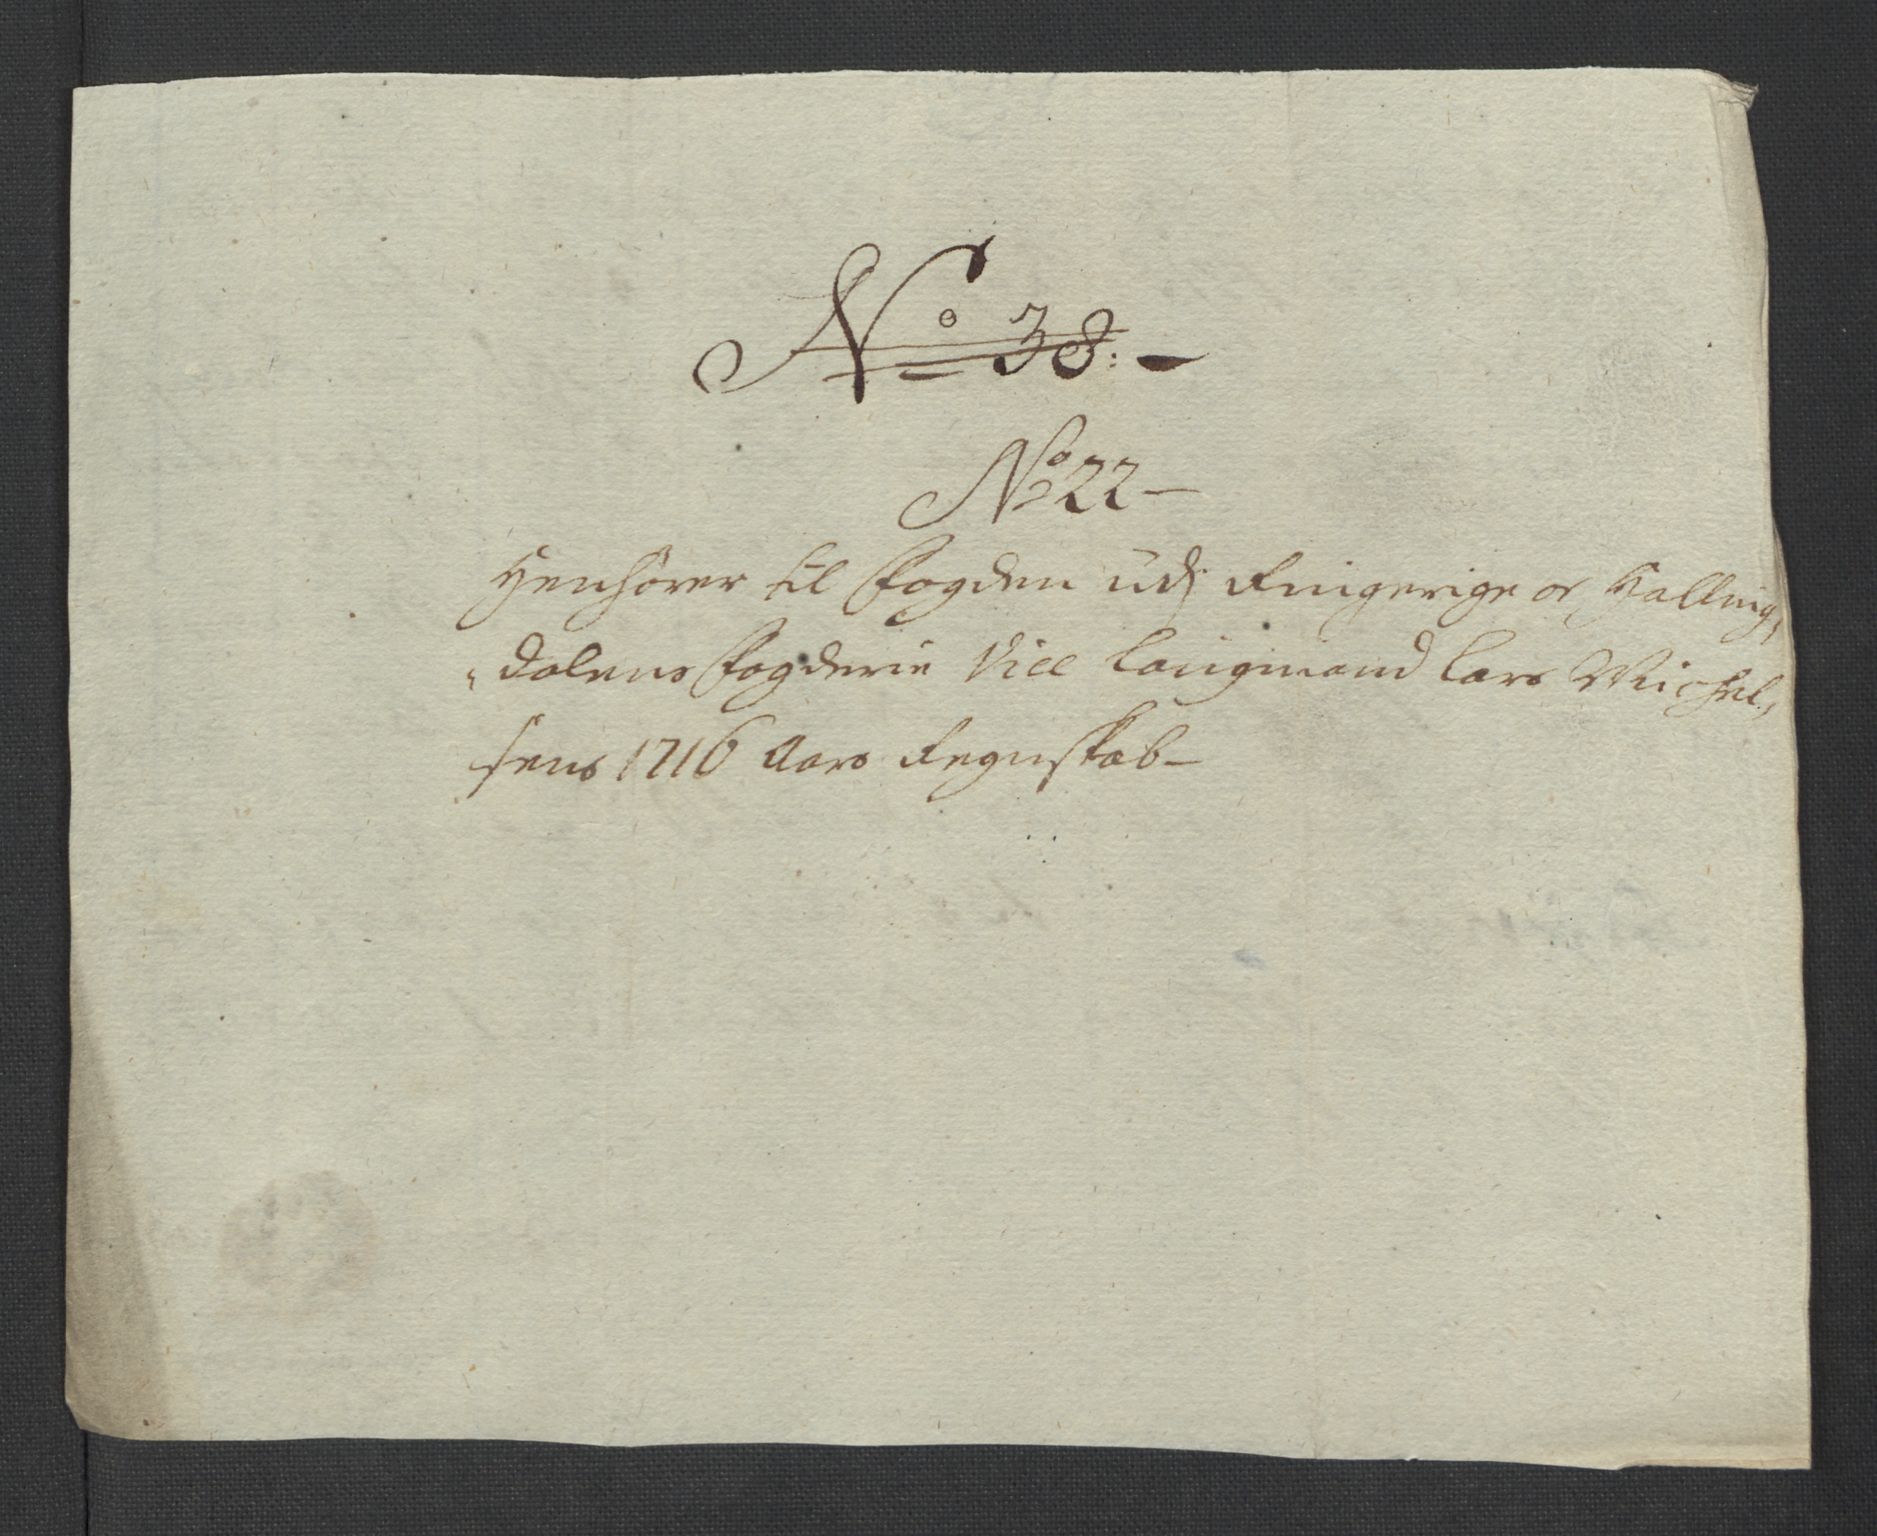 No 38.
No 22
Henhörer til Fogden udj Ringerige oc Halling,
dalens Fogderie Vice Laugmand Lars Michel,
sens 1716 Aars Regnskab